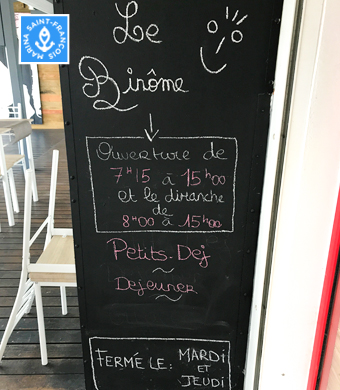 MARINA SAINT-FRANÇOIS
Le
Birôme
Ouverture de
7H15 à 15H00
et le dimanche
de
8H00 à 15H00
Petits-Dej
~
Dejeuner
~
FERMÉ LE: MARDI
ET
JEUDI